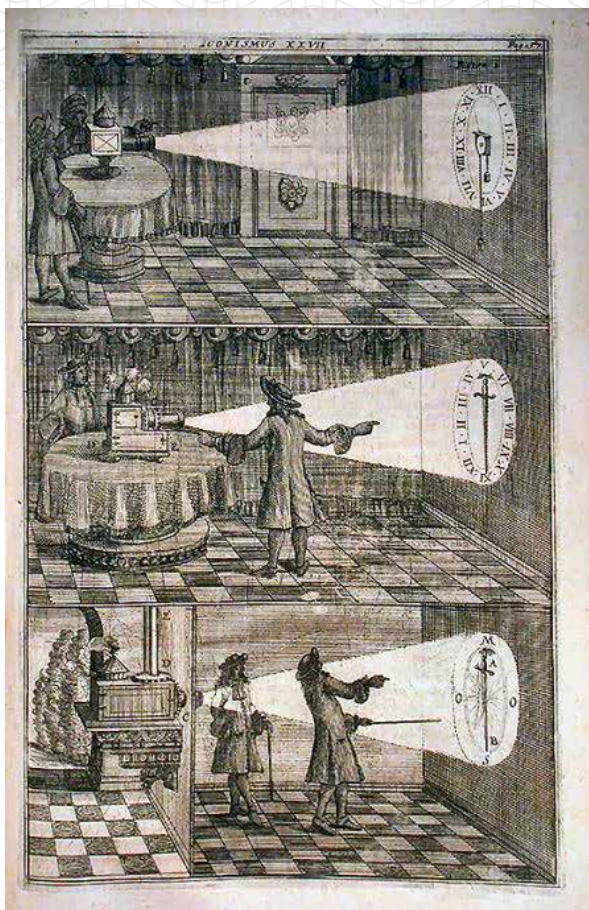 ICONISMUS XXVII
XII I II III IV V VI VII VIII IX X XI
V VI VII VIII IX X XI XII I II III
E
D
C
M
A
O O
B
S